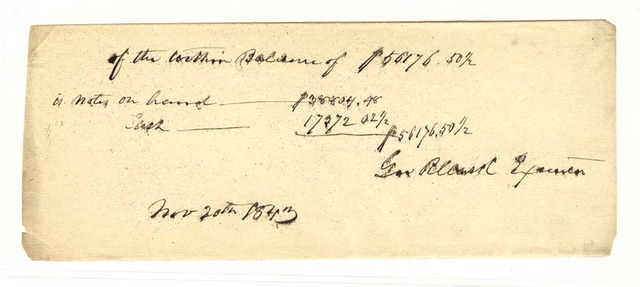 of the within Balance of $56176.50½
is notes on hand — $38804.48
Cash — 17372 02½ $56176.50½
Geo
Nov 20th 1843